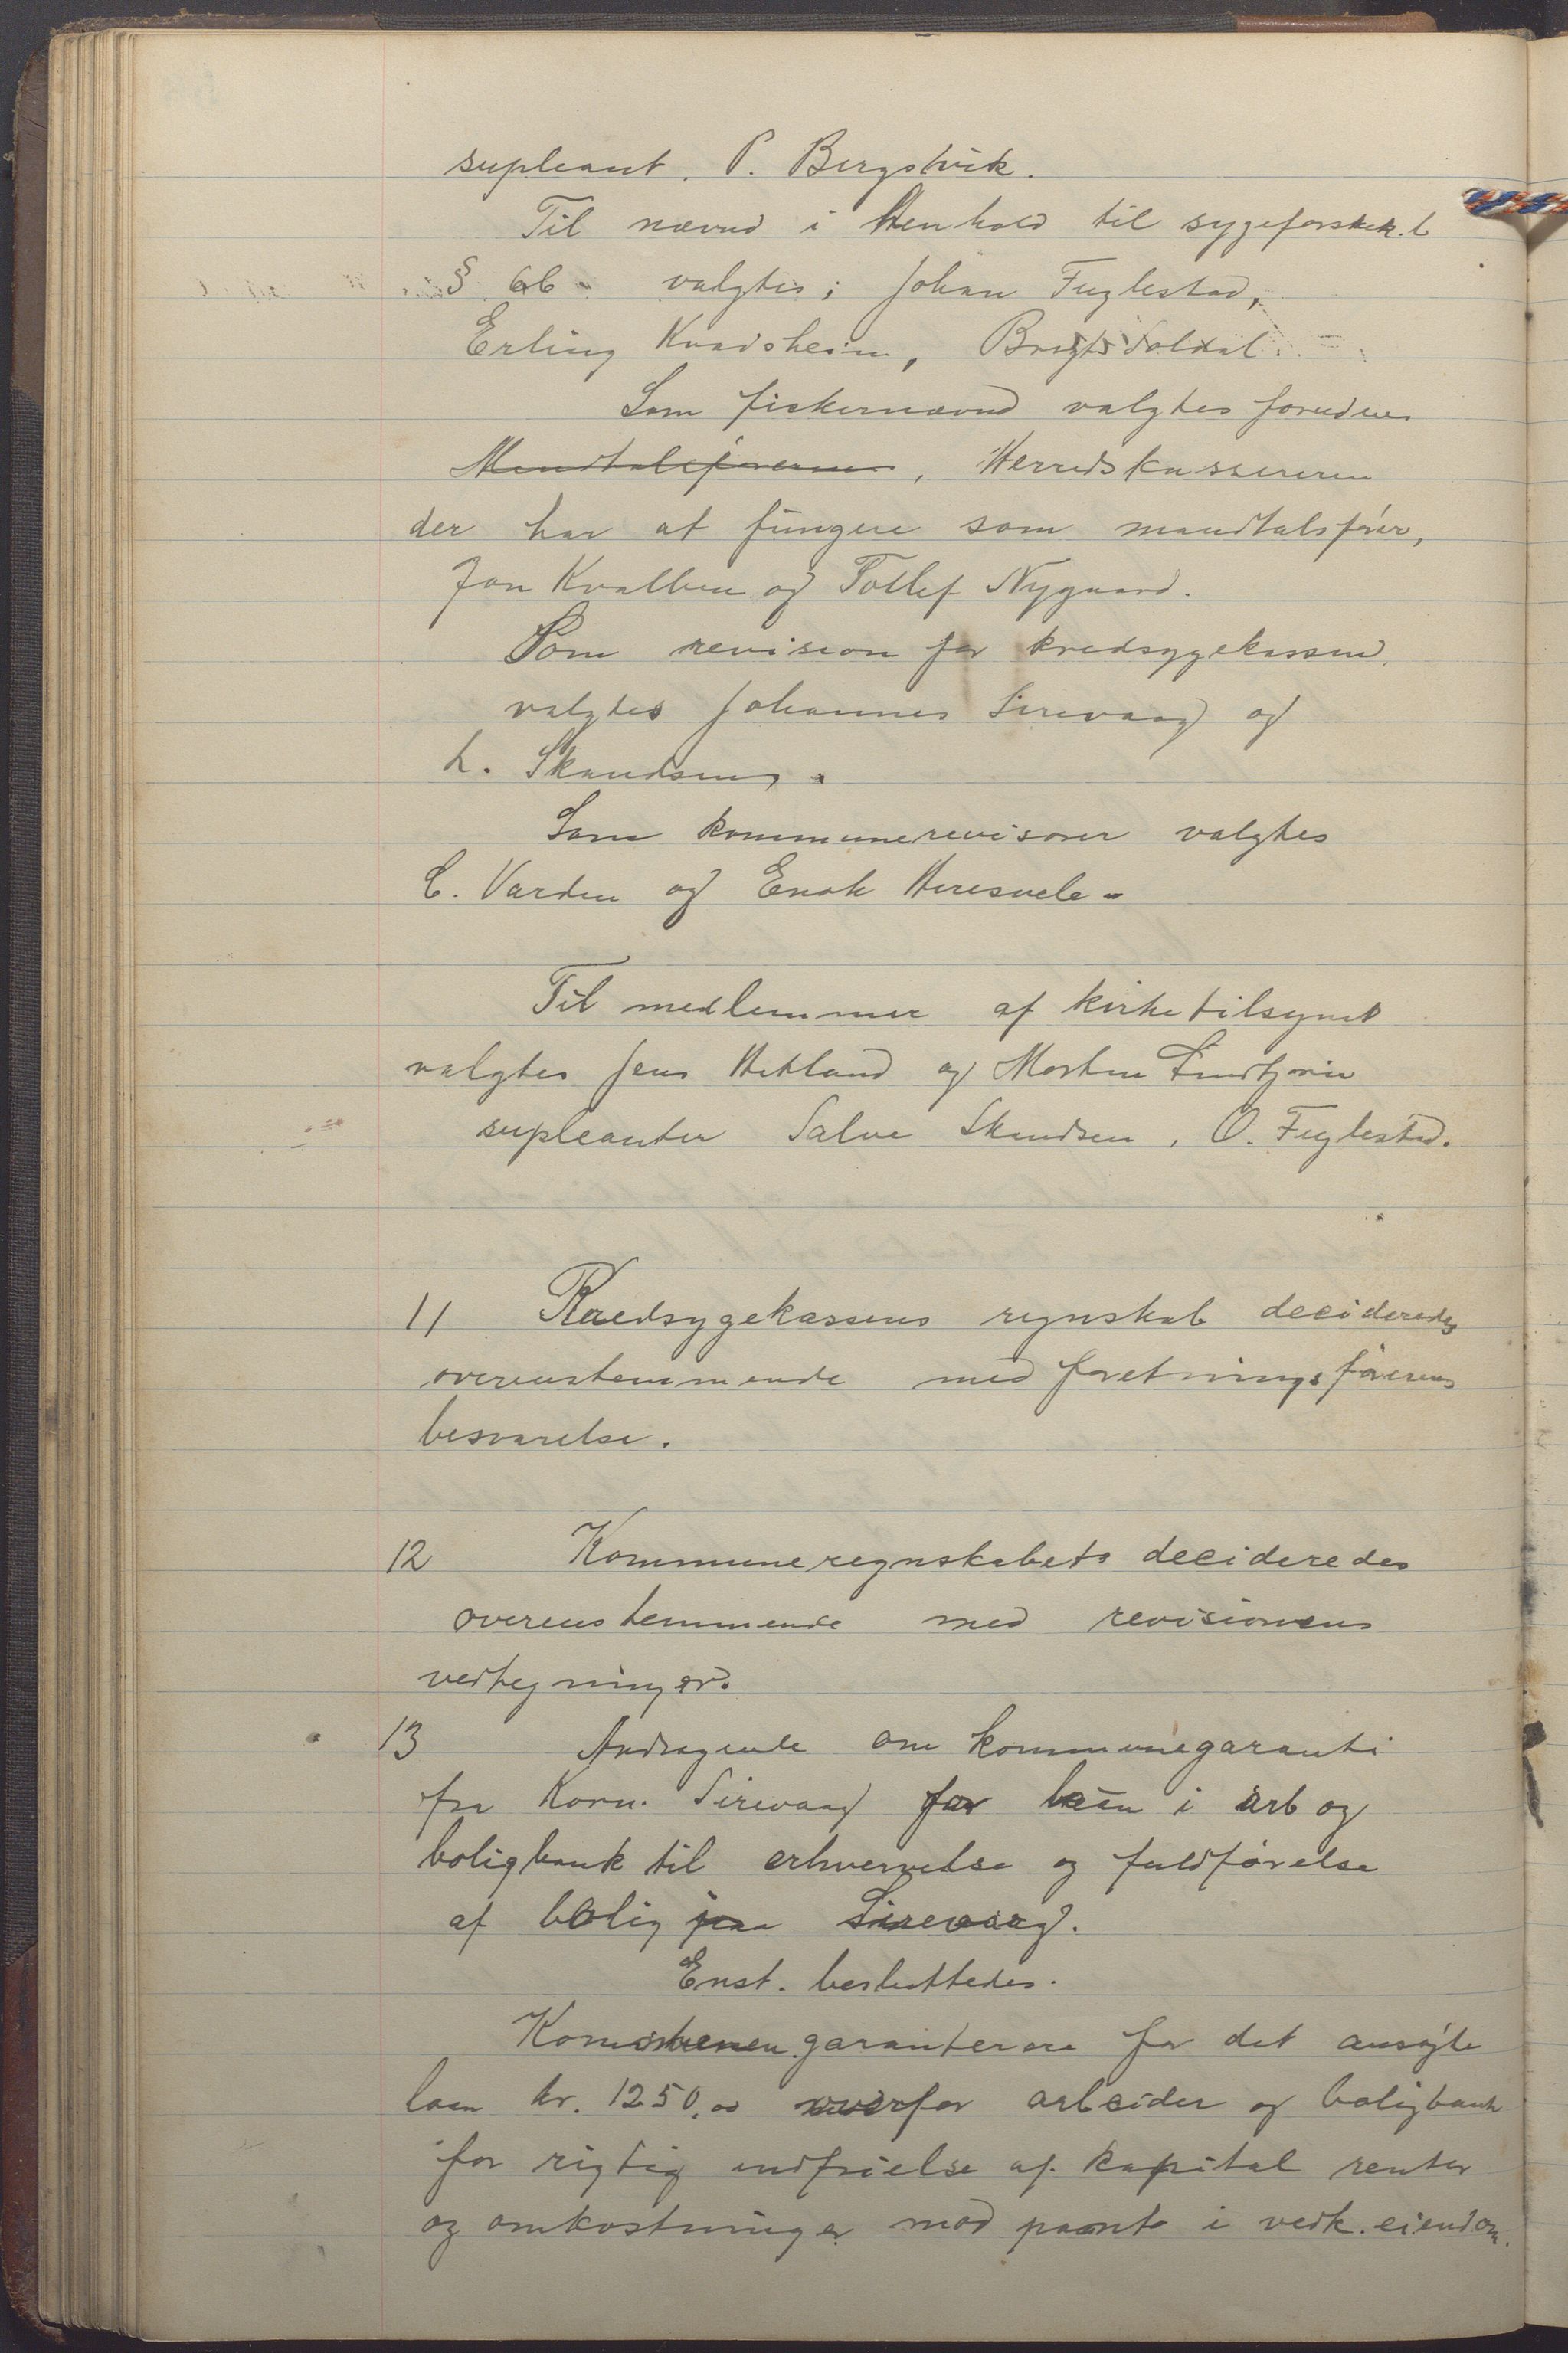 supleant. P. Bergstvik.
Til nævnd i Henhold til sygeforsikr. l
§ 66 - valgtes; Johan Fuglestad,
Erling Kvadsheim, Brigt Soldal.
Som fiskernævnd valgtes foruden
Mandtalsføreren, Herredskassereren
der har at fungere som mandtalsfører,
Jon Kvalbein og Tollef Nygaard.
Som revision for kredsygekassen
valgtes Johannes Sirevaag og
L. Skandsen.
Som kommunerevisorer valgtes
C. Varden og Enok Heresvele -
Til medlemmer af kirketilsynet
valgtes Jens Hetland og Morten
supleanter Salve Skandsen, O. Fuglestad.
11 Kredsygekassens regnskab decideredes
overenstemmende med foretningsførerens
besvarelse.
12 Kommuneregnskabets decideredes
overenstemmende med revisionens
vedtegninger.
13 Andragende om kommunegaranti
fra Korn. Sirevaag for laan i arb og
boligbank til erhvervelse og fuldførelse
af bolig paa Sirevaag.
Enst. besluttedes.
Kommunen garanterere for det ansøgte
laan kr. 1250,00 overfor arbeider og boligbank
for rigtig indfrielse af kapital renter
og omkostninger mod pant i vedk. eiendom.